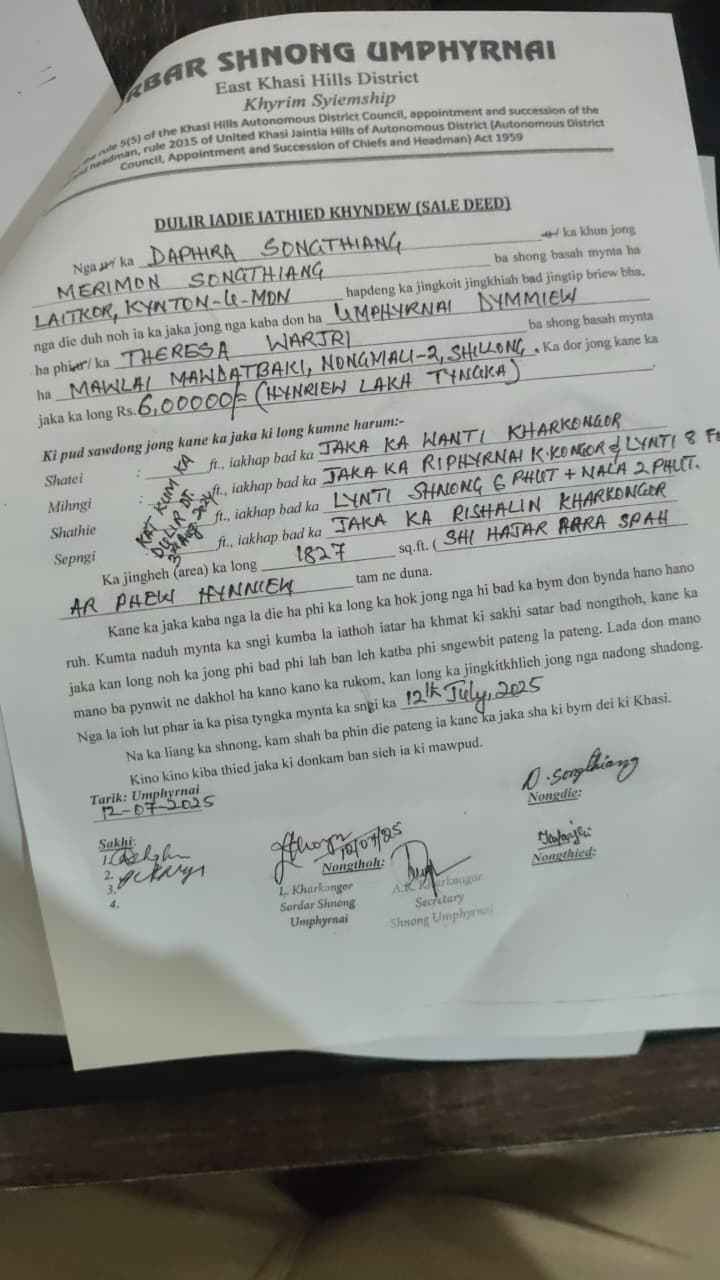 RBAR SHNONG UMPHYRNAI
East Khasi Hills District
Khyrim Syiemship
rule 5(5) of the Khasi Hills Autonomous District Council, appointment and succession of the
headman, rule 2015 of United Khasi Jaintia Hills of Autonomous District (Autonomous District
Council, Appointment and Succession of Chiefs and Headman) Act 1959
DULIR IADIE IATHIED KHYNDEW (SALE DEED)
Nga / ka DAPHIRA SONGTHIANG / ka khun jong
MERIMON SONGTHIANG ba shong basah mynta ha
LAITKOR, KYNTON-U-MON hapdeng ka jingkoit jingkhiah bad jingtip briew bha,
nga die duh noh ia ka jaka jong nga kaba don ha UMPHYRNAI DYMMIEW
ha phi / ka THERESA WARJRI ba shong basah mynta
ha MAWLAI MAWDATBAKI, NONGMALI-2, SHILLONG. Ka dor jong kane ka
jaka ka long Rs. 6,00000/= (HYNRIEW LAKH TYNGKA)
Ki pud sawdong jong kane ka jaka ki long kumne harum:-
Shatei : ft., iakhap bad ka JAKA KA WANTI KHARKONGOR
Mihngi : ft., iakhap bad ka JAKA KA RIPHYRNAI K.KONGOR & LYNTI 8
Shathie ft., iakhap bad ka LYNTI SHNONG 6 PHUT + NALA 2 PHUT.
Sepngi ft., iakhap bad ka JAKA KA RISHALIN KHARKONGOR
KAT KUM KA
DULIR DT.
Aug. 2024
Ka jingheh (area) ka long 1827 sq.ft. ( SHI HAJAR PHRA SPAH
AR PHEW HYNNIEW tam ne duna.
Kane ka jaka kaba nga la die ha phi ka long ka hok jong nga hi bad ka bym don bynda hano hano
ruh. Kumta naduh mynta ka sngi kumba la iathoh iatar ha khmat ki sakhi satar bad nongthoh, kane ka
jaka kan long noh ka jong phi bad phi lah ban leh katba phi sngewbit pateng la pateng. Lada don mano
mano ba pynwit ne dakhol ha kano kano ka rukom, kan long ka jingkitkhlieh jong nga nadong shadong.
Nga la ioh lut phar ia ka pisa tyngka mynta ka sngi ka 12th July, 2025
Na ka liang ka shnong, kam shah ba phin die pateng ia kane ka jaka sha ki bym dei ki Khasi.
Kino kino kiba thied jaka ki donkam ban sieh ia ki mawpud.
Tarik: Umphyrnai
12-07-2025
D. Songthiang
Nongdie:
Sakhi:
1.
2.
3.
4.
12/07/25
Nongthoh:
L. Kharkongor
Sordar Shnong
Umphyrnai
A.K. Kharkongor
Secretary
Shnong Umphyrnai
Nongthied: